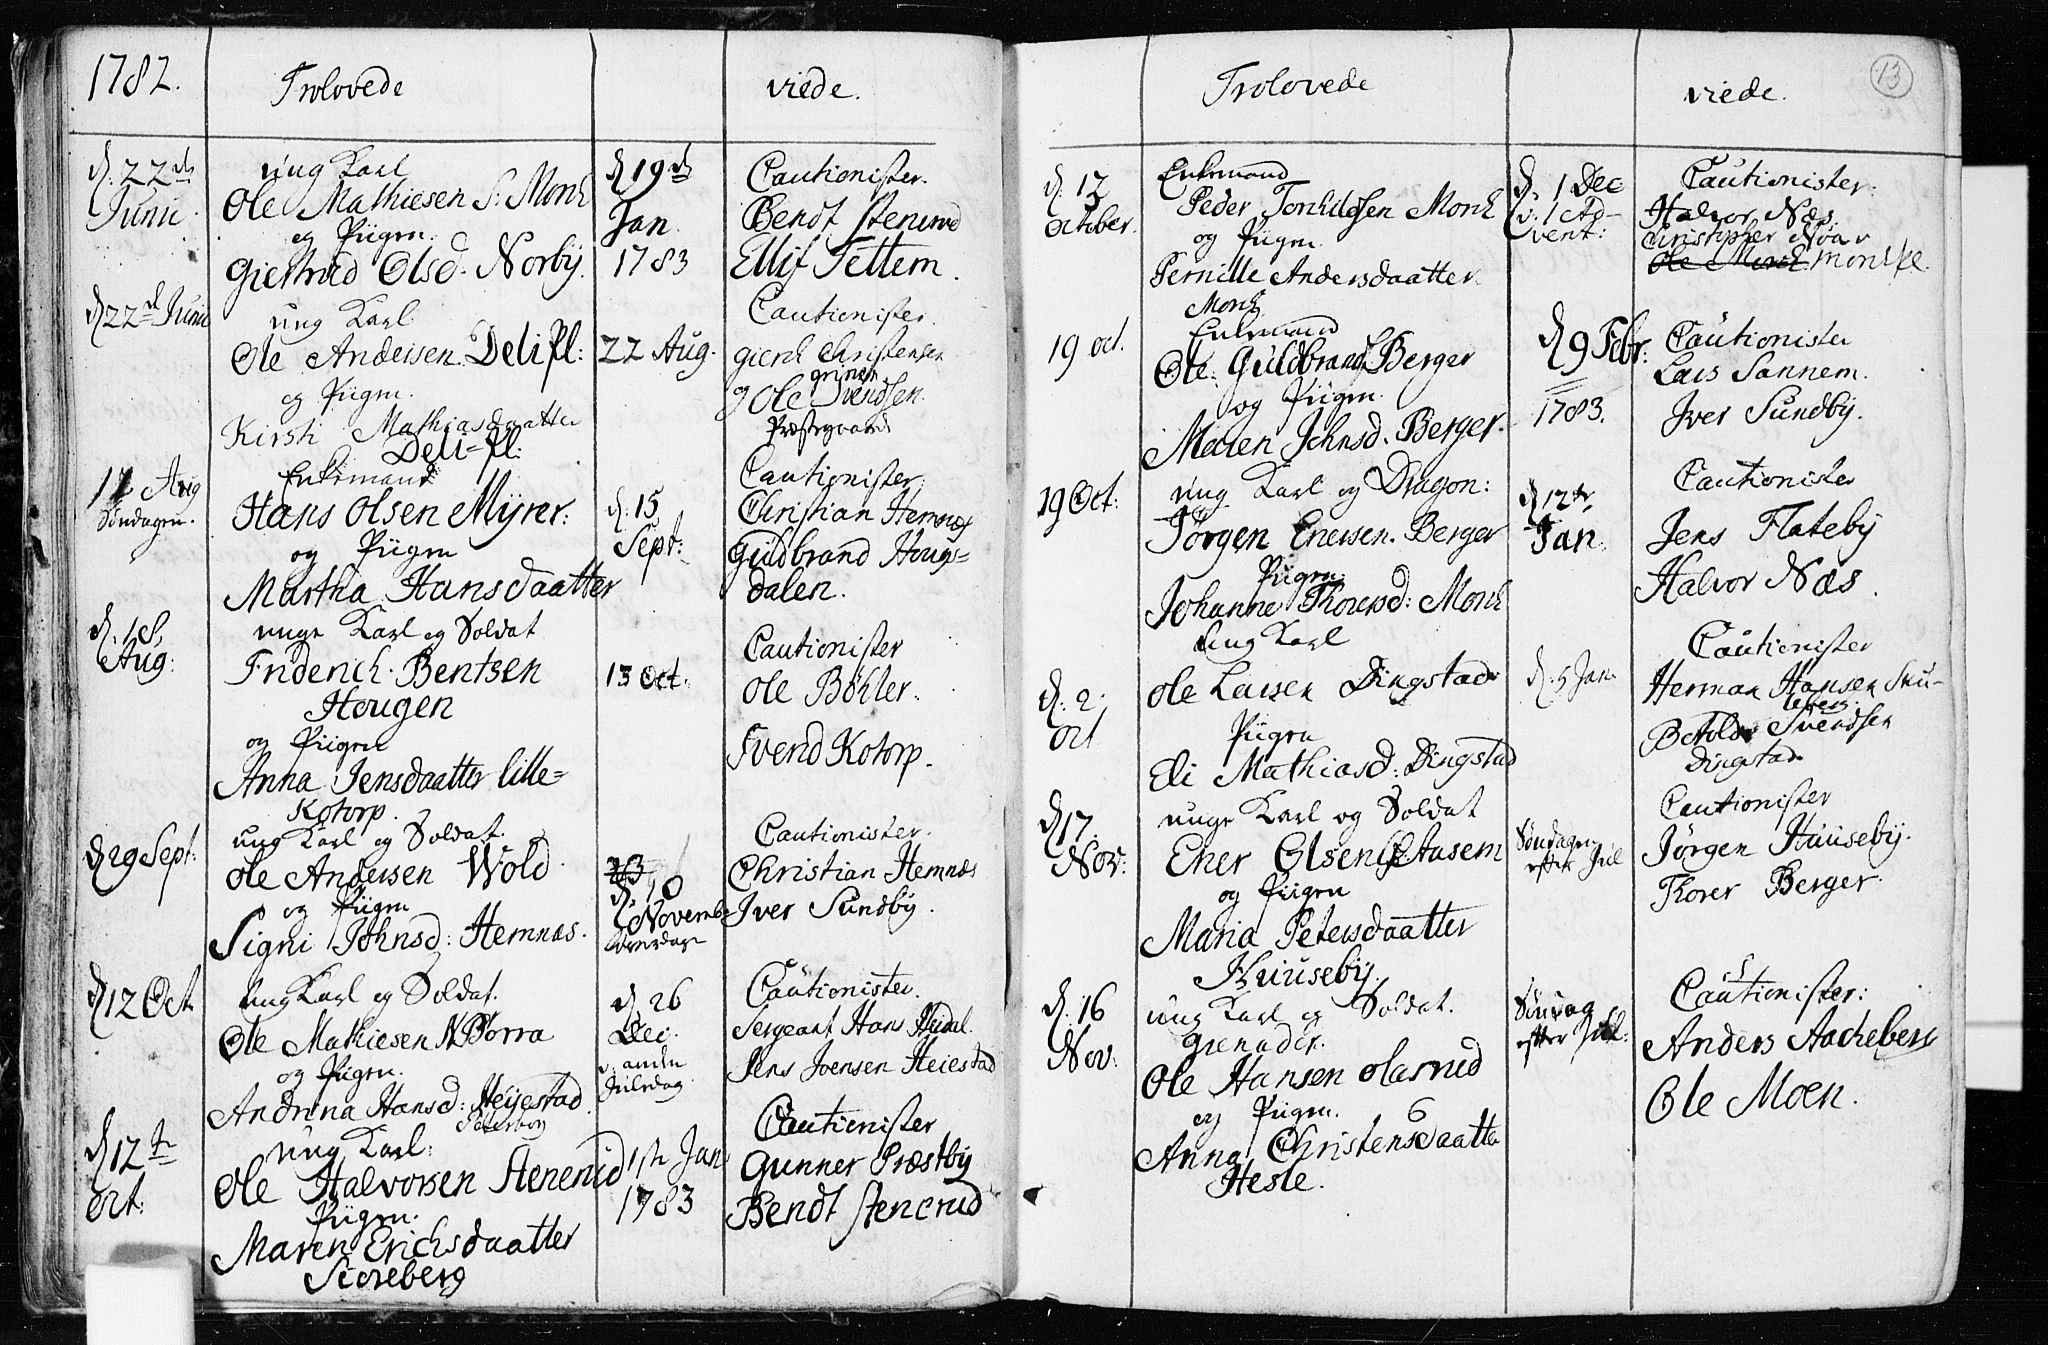 1782.
Trolovede
viede.
d. 22de
Junii
ung Karl
Ole Mathiesen S. Monk
og Piigen
Giertrud Olsd. Norby.
d 19de
Jan.
1783
Cautionister.
Bendt Stenerud
Ellif Tettem.
d 22d Junii
ung Karl
Ole Andersen Deli Pl:
og Piigen.
Kirsti Mathiasdaatter
Deli-Pl:
22 Aug.
Cautionister.
Gierth Christensen
Ole Svendsen.
Præstegaard
Aug
Søndagen.
Enkemand
Hans Olsen Myrer:
og Piigen
Martha Hansdaatter
d. 15
Sept:
Cautionister.
Christian Hemnæs
Guldbrand Hougs=
dalen.
d. 18
Aug:
unge Karl og Soldat
Friderich Bentsen
Hougen
og Piigen
Anna Jensdaatter lille=
Kotorp.
13 Oct.
Cautionister
Ole Bøhler.
Svend Kotorp.
d 29 Sept:
ung Karl og Soldat.
Ole Andersen Wold.
og Piigen
Signi Johnsd: Hemnæs.
d. 10
Novemb.
Cautionister.
Christian Hemnæs
Iver Sundby.
d 12 Oct.
ung Karl og Soldat.
Ole Mathiesen N Børra
og Piigen.
Andrina Hansd: Heyestad
d. 26
Dec.
v: anden
Juledag.
Cautionister.
Sergeant Hans
Jens Joensen Heiestad
d 12te
Oct:
ung Karl:
Ole Halvorsen Stenerud
Piigen.
Maren Erichsdaatter
Skoreberg
1ste Jan
1783
Cautionister
Gunner Præstby
Bendt Stenerud
13
Trolovede
viede.
d. 12
October.
Enkemand
Peder Torkildsen Monk
og Piigen.
Pernille Andersdaatter.
Monk
d. 1 Dec
v. 1 Ad-
vent:
Cautionister:
Halvor Næs.
Christopher
Ole Monk Monk Pl.
19 oct.
Enkemand
Ole Guldbrands. Berger
og Piigen.
Maren Johnsd. Berger.
d 9 Febr:
1783.
Cautionister
Lars Sannem.
Iver Sundby.
19 Oct:
ung Karl og Dragon:
Jørgen Enersen. Berger
Piigen
Johanne Thorersd: Monk
d 12te
Jan:
Cautionister
Jens Flateby
Halvor Næs.
d. 2.
Oct
ung Karl
Ole Larsen Dingstad
Piigen
Eli Mathiasd: Dingstad
d. 5 Jan
Cautionister
Herman Hansen Sku-
lerud
Svendsen
Dingstad
d 17.
Nov:
unge Karl og Soldat
Ener Olsen Aasem
og Piigen
Maria Petersdaatter
Huuseby.
Søndagen
efter Jul
Cautionister
Jørgen Huuseby.
Thorer Berger.
d. 16
Nov:
ung Karl og Soldat.
Grenader.
Ole Hansen Olasrud
og Piigen.
Anna Christensdaatter
Hesle.
Søndag
efter Jul:
Cautionister:
Anders Aacheberg
Ole Moen.